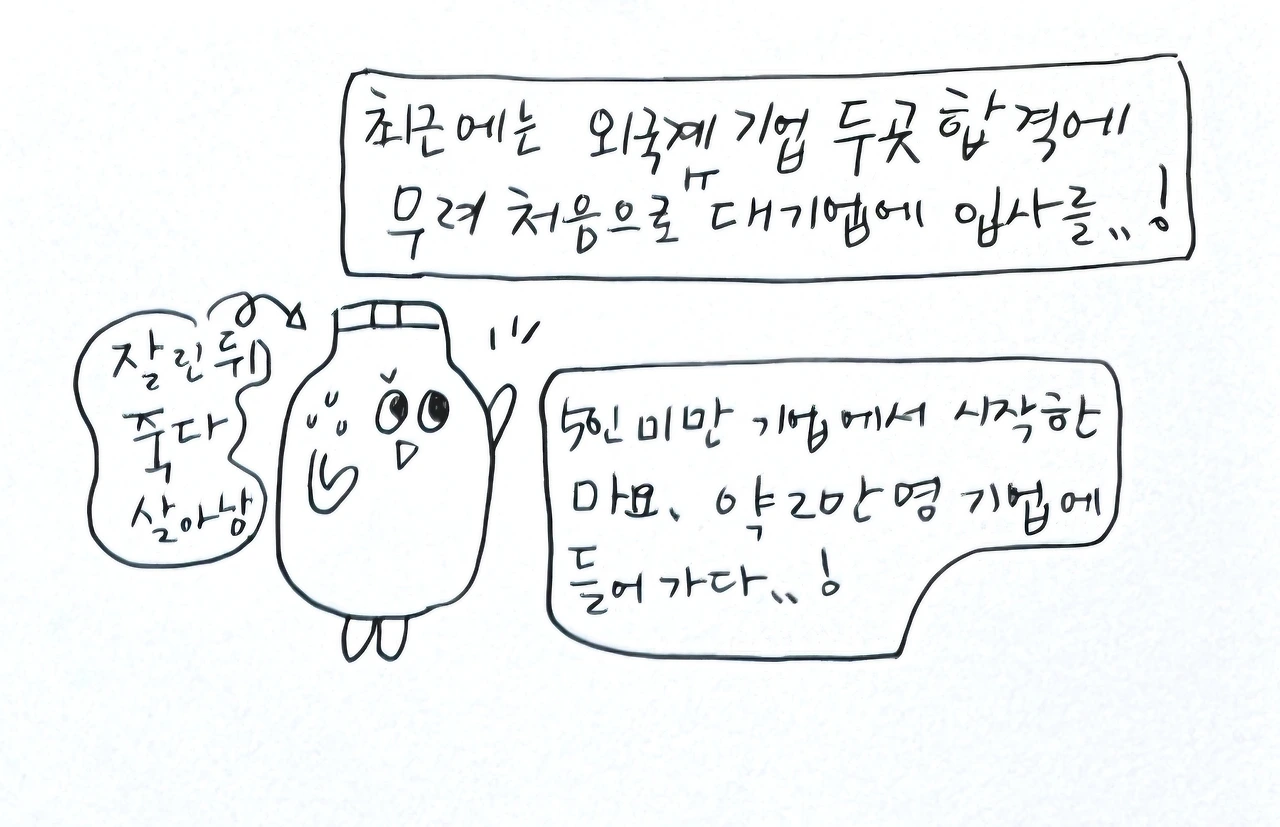 최근에는 외국계 기업 두곳 합격에
무려 처음으로 ㅠ대기업에 입사를..!
잘린 뒤
죽다
살아남
5인 미만 기업에서 시작한
마요, 약 2만명 기업에
들어가다..!